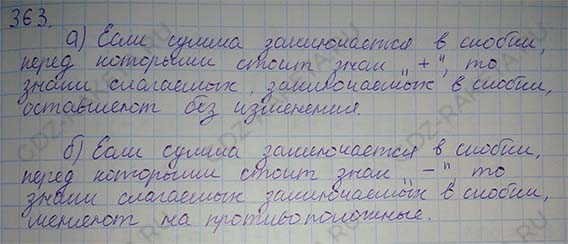 363.
а) Если сумма заключается в скобки,
перед которыми стоит знак „+“, то
знаки слагаемых, заключаемых в скобки,
оставляют без изменения.
б) Если сумма заключается в скобки,
перед которыми стоит знак „−“, то
знаки слагаемых заключаемых в скобки,
меняют на противоположные.